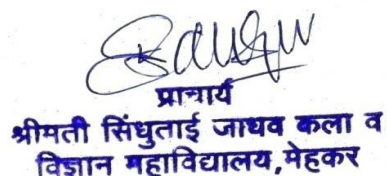 प्राचार्य
श्रीमती सिंधुताई जाधव कला व
विज्ञान महाविद्यालय,मेहकर